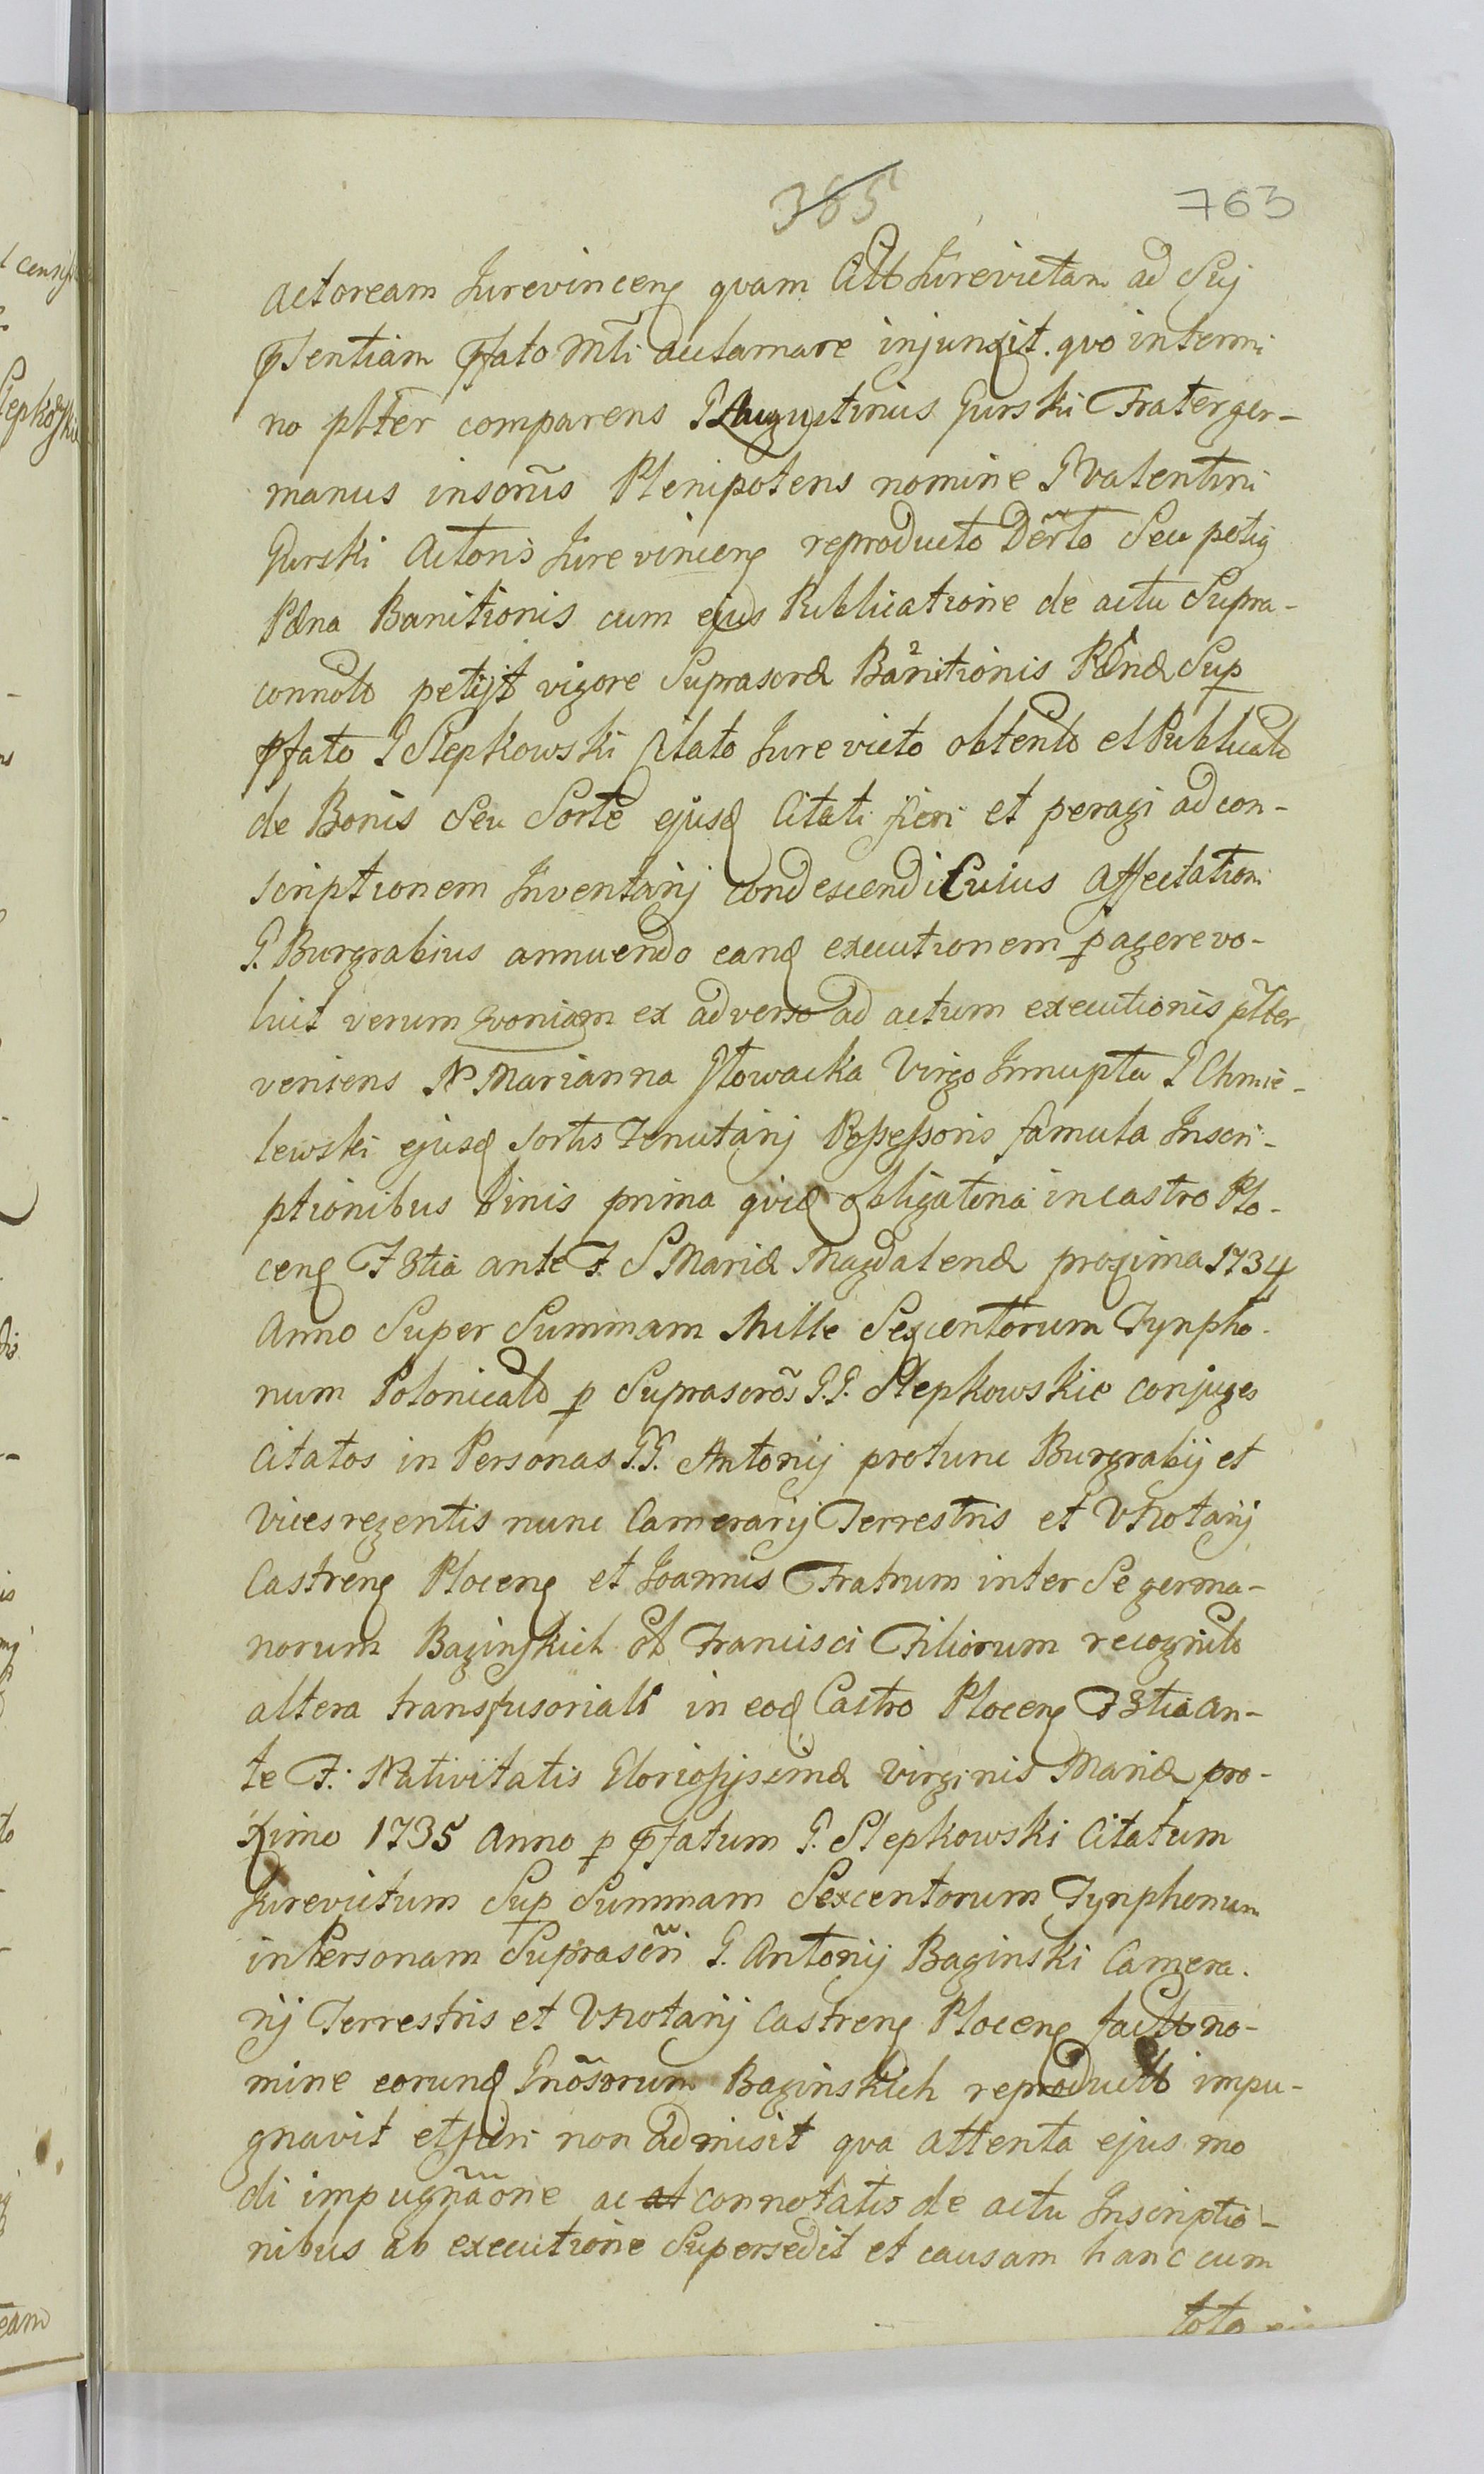 385 763
actoream Jurevinceng quam Citt Jurevictam ad Suj
pſentiam pfato Mti aclamare injunxit. quo intermi
no plter comparens G Augustinus Gurski Frater ger-
manus inscrüs Plenipotens nomine G Valentini
Gurski Actoris Jure vinceng reproducto Dërto Seu potig
Pæna Banitionis cum ejus Publicatione de actu Supra-
connoto petijt vigore Suprascræ Banitionis Pænæ Sup
pfato G Slepkowski Citato Jure victo obtento et Publicato
de Bonis Seu Sorte ejusd Citati fieri et peragi ad con-
scriptionem Inventarij condescendi Cuius Affectationi
G. Burgrabius annuendo eand executionem pagere vo-
luit verum qvoniam ex adverso ad actum executionis plter
veniens N Marianna Głowacka Virgo Innupta G Chmie-
lewski ejusd sortis Tenutarij Possessoris famula Inscri-
ptionibus binis prima qvid obligatoria in castro Plo-
ceng F 3tia ante F. S Mariæ Magdalenæ proxima 1734
Anno Super Summam Mille Sexcentorum Tynpho-
num Polonicalo p Suprascrõs G.G. Slepkowskie conjuges
Citatos in Personas G.G. Antonij protunc Burgrabij et
Vicesregentis nunc Camerarij Terrestris et VNotarij
Castreng Ploceng et Joannis Fratrum inter Se germa-
norum Baginskich ol Francisci Filiorum recognito
altera transfusoriali in eod Castro Ploceng F 3tia an-
te F. Nativitatis Gloriosissimæ Virginis Mariæ pro-
ximo 1735 Anno p pfatum G. Slepkowski Citatum
Jurevictum Sup Summam Sexcentorum Tynphonum
in Personam Suprascri G. Antonij Baginski Camera-
rij Terrestris et VNotarij Castreng Ploceng facto no-
mine eorund Gnõsorum Baginskich reproducto impu-
gnavit et fieri non admisit qva attenta ejus mo
di impugnãone ac connotatis de actu Inscriptio-
nibus ab executione Supersedit et causam hanc cum
tota